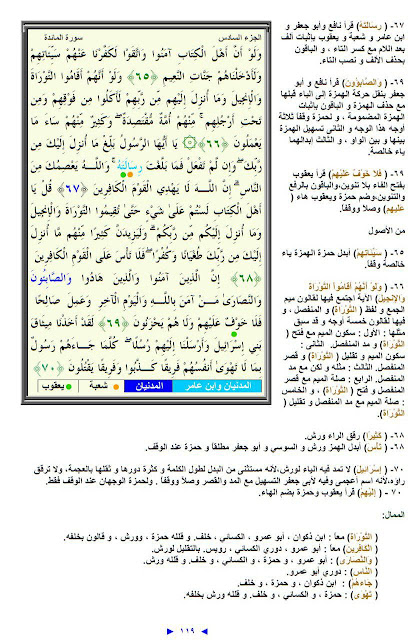 الجزء السادس
سورة المائدة
وَلَوْ أَنَّ أَهْلَ الْكِتَابِ آمَنُوا وَاتَّقَوْا لَكَفَّرْنَا عَنْهُمْ سَيِّئَاتِهِمْ
وَلَأَدْخَلْنَاهُمْ جَنَّاتِ النَّعِيمِ ﴿٦٥﴾ وَلَوْ أَنَّهُمْ أَقَامُوا التَّوْرَاةَ
وَالْإِنجِيلَ وَمَا أُنزِلَ إِلَيْهِم مِّن رَّبِّهِمْ لَأَكَلُوا مِن فَوْقِهِمْ وَمِن
تَحْتِ أَرْجُلِهِم ۚ مِّنْهُمْ أُمَّةٌ مُّقْتَصِدَةٌ ۖ وَكَثِيرٌ مِّنْهُمْ سَاءَ مَا
يَعْمَلُونَ ﴿٦٦﴾ ۞ يَا أَيُّهَا الرَّسُولُ بَلِّغْ مَا أُنزِلَ إِلَيْكَ مِن
رَّبِّكَ ۖ وَإِن لَّمْ تَفْعَلْ فَمَا بَلَّغْتَ رِسَالَتَهُ ۚ وَاللَّهُ يَعْصِمُكَ مِنَ
النَّاسِ ۗ إِنَّ اللَّهَ لَا يَهْدِي الْقَوْمَ الْكَافِرِينَ ﴿٦٧﴾ قُلْ يَا
أَهْلَ الْكِتَابِ لَسْتُمْ عَلَىٰ شَيْءٍ حَتَّىٰ تُقِيمُوا التَّوْرَاةَ وَالْإِنجِيلَ
وَمَا أُنزِلَ إِلَيْكُم مِّن رَّبِّكُمْ ۗ وَلَيَزِيدَنَّ كَثِيرًا مِّنْهُم مَّا أُنزِلَ
إِلَيْكَ مِن رَّبِّكَ طُغْيَانًا وَكُفْرًا ۖ فَلَا تَأْسَ عَلَى الْقَوْمِ الْكَافِرِينَ
﴿٦٨﴾ إِنَّ الَّذِينَ آمَنُوا وَالَّذِينَ هَادُوا وَالصَّابِئُونَ
وَالنَّصَارَىٰ مَنْ آمَنَ بِاللَّهِ وَالْيَوْمِ الْآخِرِ وَعَمِلَ صَالِحًا
فَلَا خَوْفٌ عَلَيْهِمْ وَلَا هُمْ يَحْزَنُونَ ﴿٦٩﴾ لَقَدْ أَخَذْنَا مِيثَاقَ
بَنِي إِسْرَائِيلَ وَأَرْسَلْنَا إِلَيْهِمْ رُسُلًا ۖ كُلَّمَا جَاءَهُمْ رَسُولٌ
بِمَا لَا تَهْوَىٰ أَنفُسُهُمْ فَرِيقًا كَذَّبُوا وَفَرِيقًا يَقْتُلُونَ ﴿٧٠﴾
المدنيان وابن عامر المدنيان شعبة يعقوب
٦٧- ( رسالته ) قرأ نافع وأبو جعفر و
ابن عامر و شعبة و يعقوب بإثبات ألف
بعد اللام مع كسر التاء ، و الباقون
بحذف الألف و نصب التاء.
٦٩- ( والصابؤون ) قرأ نافع و أبو
جعفر بنقل حركة الهمزة إلى الباء قبلها
مع حذف الهمزة و الباقون بإثبات
الهمزة المضمومة ، و لحمزة وقفا ثلاثة
أوجه هذا الوجه و الثاني تسهيل الهمزة
بينها و بين الواو ، و الثالث إبدالهما
ياء خالصة.
٦٩- ( فلا خوف عليهم ) قرأ يعقوب
بفتح الفاء بلا تنوين،والباقون بالرفع
والتنوين،وضم حمزة ويعقوب هاء (
عليهم ) وصلاً ووقفاً.
من الأصول
٦٥- ( سيئاتهم ) أبدل حمزة الهمزة ياء
خالصة وقفاً.
٦٦- ( ولو أنهم أقاموا التوراة
والإنجيل ) الآية اجتمع فيها لقالون ميم
الجمع و لفظ ( التوراة ) و المنفصل ،
فيها لقالون خمسة أوجه و قد سبق
مثلها : الأول : سكون الميم مع فتح (
التوراة ) و مد المنفصل. الثاني :
سكون الميم و تقليل ( التوراة ) و قصر
المنفصل. الثالث : مثله و لكن مع مد
المنفصل. الرابع : صلة الميم مع قصر
المنفصل و فتح ( التوراة ) ، و الخامس
: صلة الميم مع مد المنفصل و تقليل (
التوراة ).
٦٨- ( كثيرا ) رقق الراء ورش.
٦٨- ( تأس ) أبدل الهمز ورش و السوسي و أبو جعفر مطلقاً و حمزة عند الوقف.
٧٠- ( إسرائيل ) لا تمد فيه الياء لورش،لأنه مستثنى من البدل لطول الكلمة و كثرة دورها و ثقلها بالعجمة، ولا ترقق
راؤه،لأنه اسم أعجمي وفيه لأبى جعفر التسهيل مع المد والقصر وصلاً ووقفاً . ولحمزة الوجهان عند الوقف فقط.
٧٠ - ( إليهم ) قرأ يعقوب وحمزة بضم الهاء.
الممال:
( التوراة ) معاً : ابن ذكوان ، أبو عمرو ، الكسائي ، خلف. و قلله حمزة ، وورش ، و قالون بخلفه.
( الكافرين ) معاً : أبو عمرو ، دوري الكسائي ، رويس. بالتقليل لورش.
( والنصارى ) : أبو عمرو ، حمزة ، و الكسائي ، و خلف. و قلله ورش.
( الناس ) : دوري أبو عمرو.
( جاءهم ) : ابن ذكوان ، و حمزة ، و خلف.
( تهوى ) : حمزة ، و الكسائي ، و خلف. و قلله ورش بخلفه.
١١٩